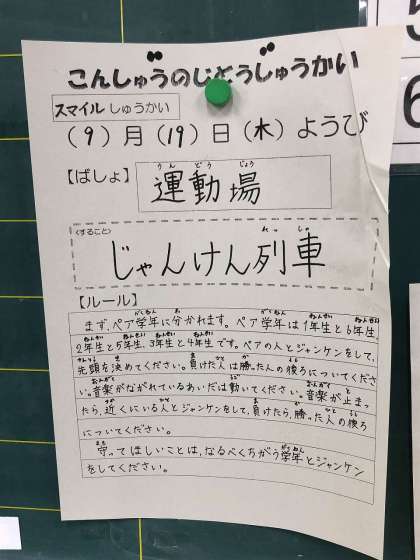 こんしゅうのじどうしゅうかい
スマイルしゅうかい
(9)月(19)日(木)ようび
【ばしょ】 運動場
うんどうじょう
<すること>
じゃんけん列車
れっしゃ
【ルール】
まず、ペア学年に分かれます。ペア学年は1年生と6年生、
2年生と5年生、3年生と4年生です。ペアの人とジャンケンをして、
先頭を決めてください。負けた人は勝った人の後ろについてくださ
い。音楽がながれているあいだは動いてください。音楽が止まっ
たら、近くにいる人とジャンケンをして、負けたら、勝った人の後ろ
についてください。
守ってほしいことは、なるべくちがう学年とジャンケン
をしてください。